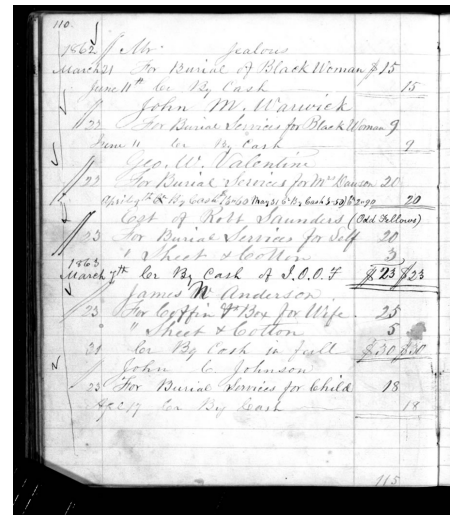 110
1862 Mr. Jealous
March 21 For Burial of Black Woman $15
June 11th Cr By Cash 15
John M. Warwick
22 For Burial Services for Black Woman 9
June 11 Cr By Cash 9
Geo. W. Valentine
23 For Burial Services for Mrs Dawson 20
April 9th Cr By Cash 20
Est of Robt Saunders (Odd Fellows)
23 For Burial Services for Self 20
" Sheet & Cotton 3
1863
March 7th Cr By Cash of I.O.O.F $23 $23
James W Anderson
23 For Coffin & Box for Wife 25
" Sheet & Cotton 5
21 Cr By Cash in full $30 $30
John C. Johnson
23 For Burial Services for Child 18
Cr By Cash 18
115